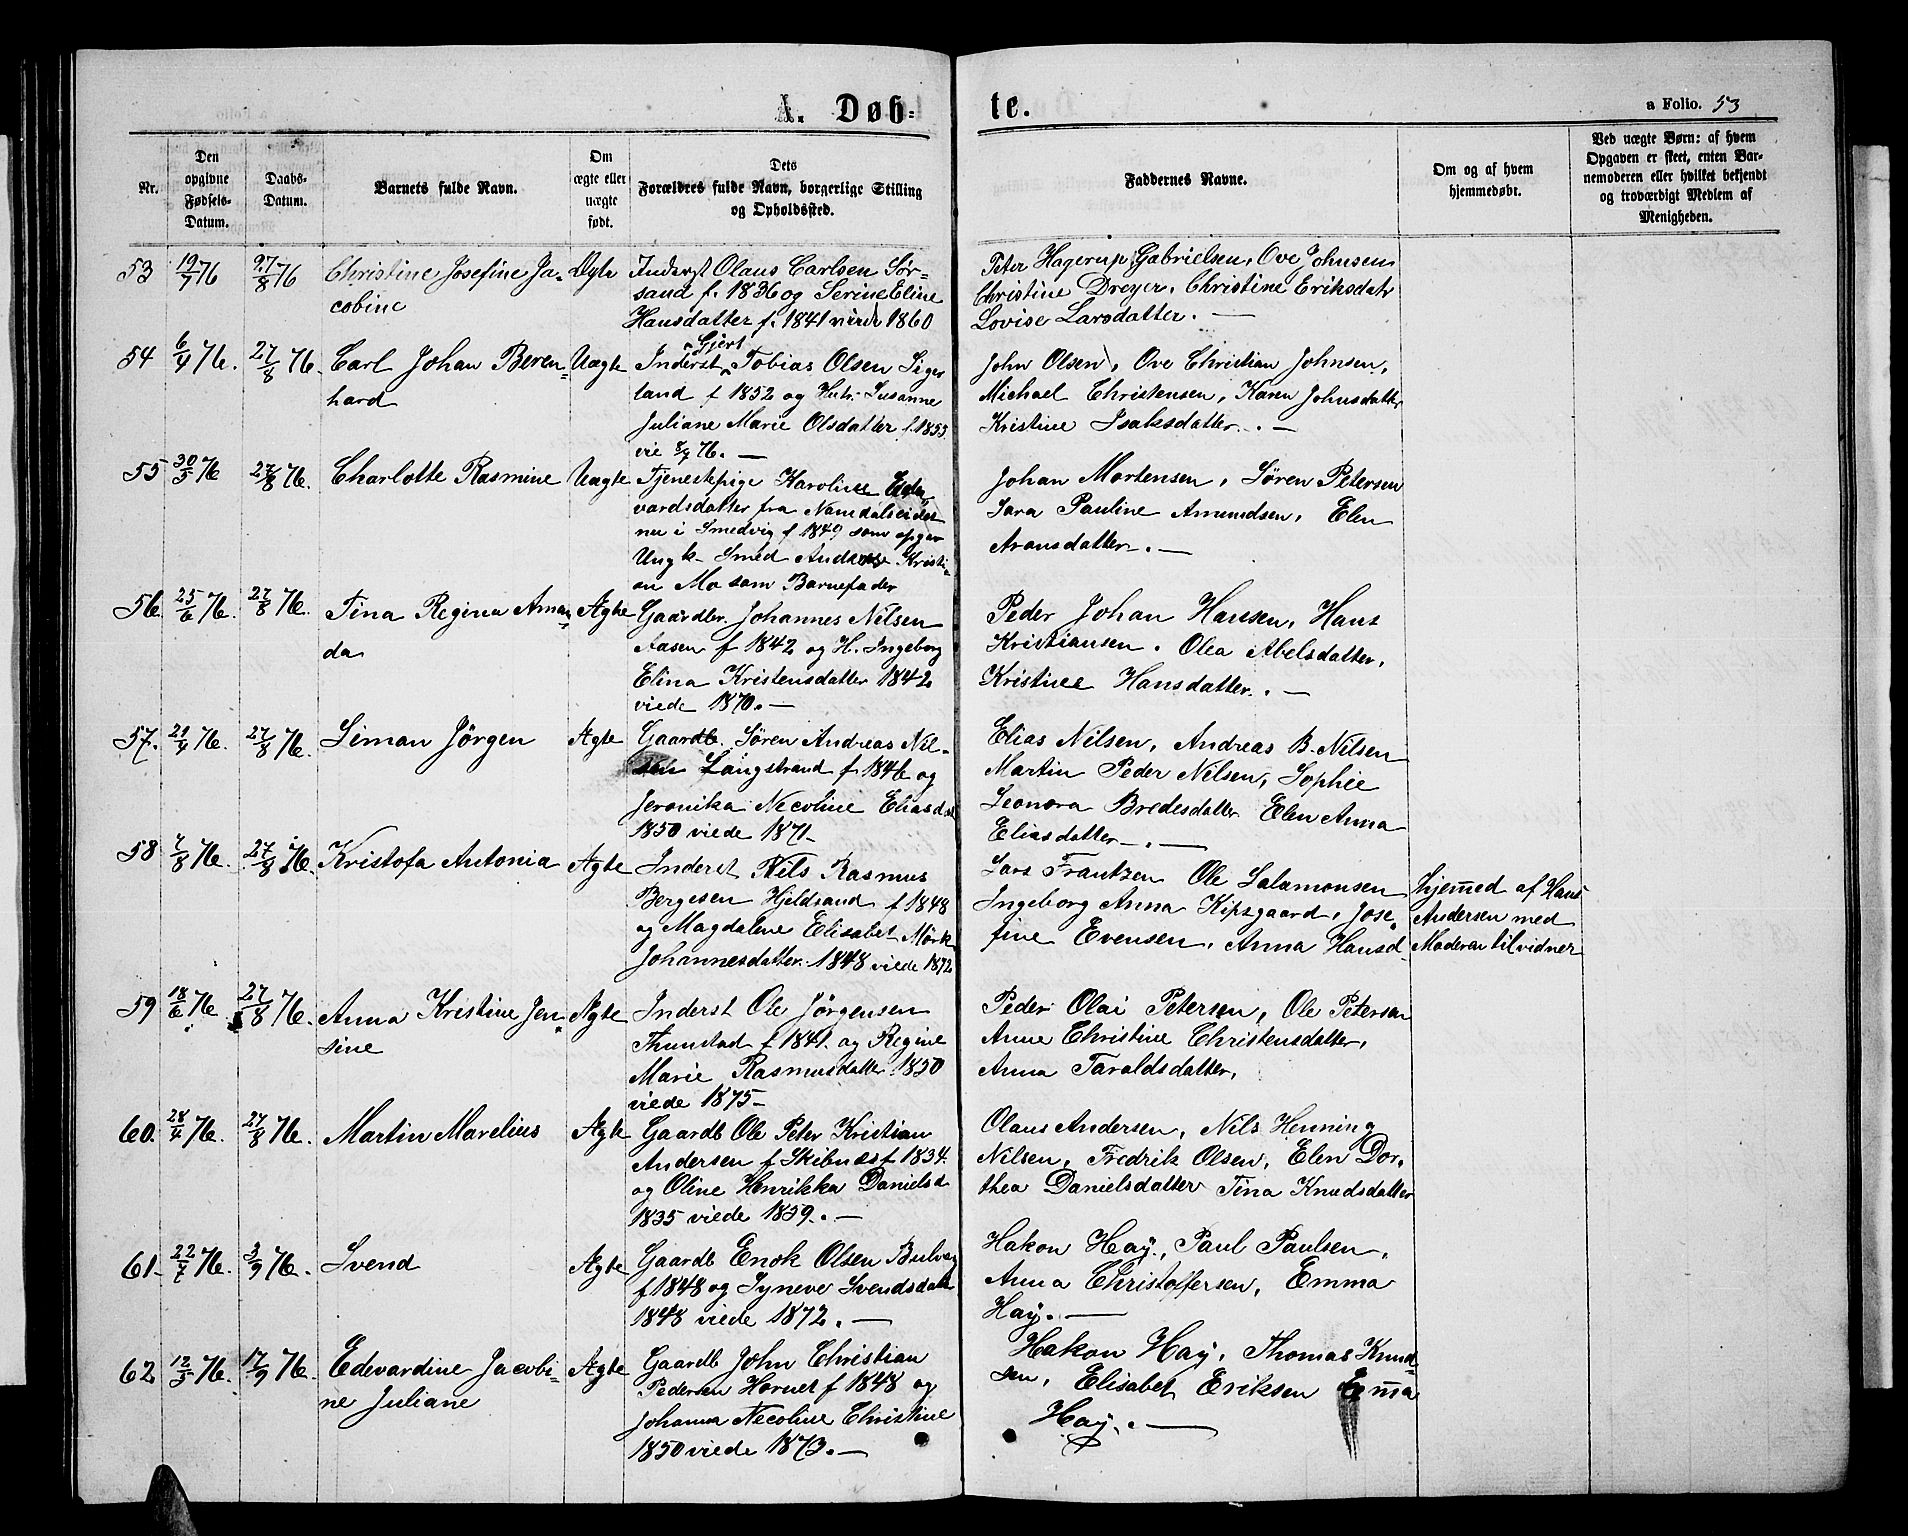 A. Døb=
te.
a Folio. 53
Nr.
Den opgivne Fødsels-Datum.
Daabs-Datum.
Barnets fulde Navn.
Om ægte eller uægte født.
Dets Forældres fulde Navn, borgerlige Stilling og Opholdssted.
Faddernes Navne.
Om og af hvem hjemmedøbt.
Ved uægte Børn: af hvem Opgaven er skeet, enten Barnemoderen eller hvilket bekjendt og troværdigt Medlem af Menigheden.
53 19/7 76 27/8 76 Christine Josefine Ja-
cobine
Ægte
Inderst Olaus Carlsen Sør-
sand f. 1836 og Serine Eline
Hansdatter f. 1841 viede 1860
Peter Hagerup Gabrielsen, Ove Johnsen
Christine Dreyer, Christine Eriksdatr
Lovise Larsdatter. —
54 6/4 76. 27/8 76. Carl Johan Beren=
hard
Uægte
Gjert
Inderst Tobias Olsen Siger
land f 1852 og Hstr. Susanne
Juliane Marie Olsdatter f. 1853
vie 8/7 76. —
John Olsen, Ove Christian Johnsen,
Michael Christensen, Karen Johnsdatter
Kristine Isaksdatter. —
55 30/5 76 27/8 76. Charlotte Rasmine
Uægte
Tjenestepige Karoline Ed
vardsdatter fra Namdalseidet
nu i Smedvig f 1849 som opgav
Ungk. Smed Andreas Kristi-
an Mo som Barnefader
Johan Mortensen, Søren Petersen
Sara Pauline Amundsen, Elen
Aronsdatter. —
56. 25/6 76. 27/8 76. Tina Regina Aman=
da
Ægte
Gaardbr. Johannes Nilsen
Aasen f 1842 og H. Ingeborg
Elina Kristensdatter 1842
viede 1870. —
Peder Johan Hansen, Hans
Kristiansen. Olea Abelsdatter,
Kristine Hansdatter. —
57. 21/4 76. 27/8 76. Siman Jörgen
Ægte
Gaardb. Søren Andreas Nil-
sen Langstrand f 1846 og
Jeronika Necoline Eliasdat
1850 viede 1871
Elias Nilsen, Andreas B. Nilsen
Martin Peder Nilsen, Sophie
Leonora Bredesdatter Elen Anna
Eliasdatter. —
58 7/8 76. 27/8 76. Kristofa Antonia
Ægte
Inderst Nils Rasmus
Bergesen Hjeldsand f 1848
og Magdalene Elisabet Mörk
Johannesdatter 1848 viede 1872
Lars Frantzen Ole Salamonsen
Ingeborg Anna Kipsgaard, Jose„
fine Evensen, Anna Hansd.
hjemmed af Hans
Andersen med
Moderen til vidner
59 18/6 76. 27/8 76. Anna Kristine Jen=
sine
Ægte
Inderst Ole Jörgensen
Thunstad f 1841. og Regine
Marie Rasmusdatter 1850
viede 1875 —
Peder Olai Petersen, Ole Petersen
Anne Christine Christensdatter,
Anna Taraldsdatter,
60. 28/4 76. 27/8 76. Martin Marelius
Ægte
Gaardb Ole Peter Kristian
Andersen f Skibnæs f 1834.
og Oline Henrikka Danielsd
1835 viede 1859. —
Olaus Andersen, Nils Henning
Nilsen, Fredrik Olsen, Elen Dor„
thea Danielsdatter Tina Knudsdatter
61. 22/7 76. 3/9 76. Svend
Ægte
Gaardb Enok Olsen Bulvag
f 1848 og Syneve Svendsdatt
1848 viede 1872. —
Hakon Haÿ, Paul Paulsen,
Anna Christoffersen, Emma
Haÿ. —
62 12/5 76. 17/9 76. Edevardine Jacobi-
ne Juliane
Ægte
Gaardb John Christian
Pedersen Hornet f 1848 og
Johanna Necoline Christine
1850 viede 1873. —
Hakon Haÿ, Thomas Knud-
sen, Elisabet Eriksen Emma
Haÿ. —